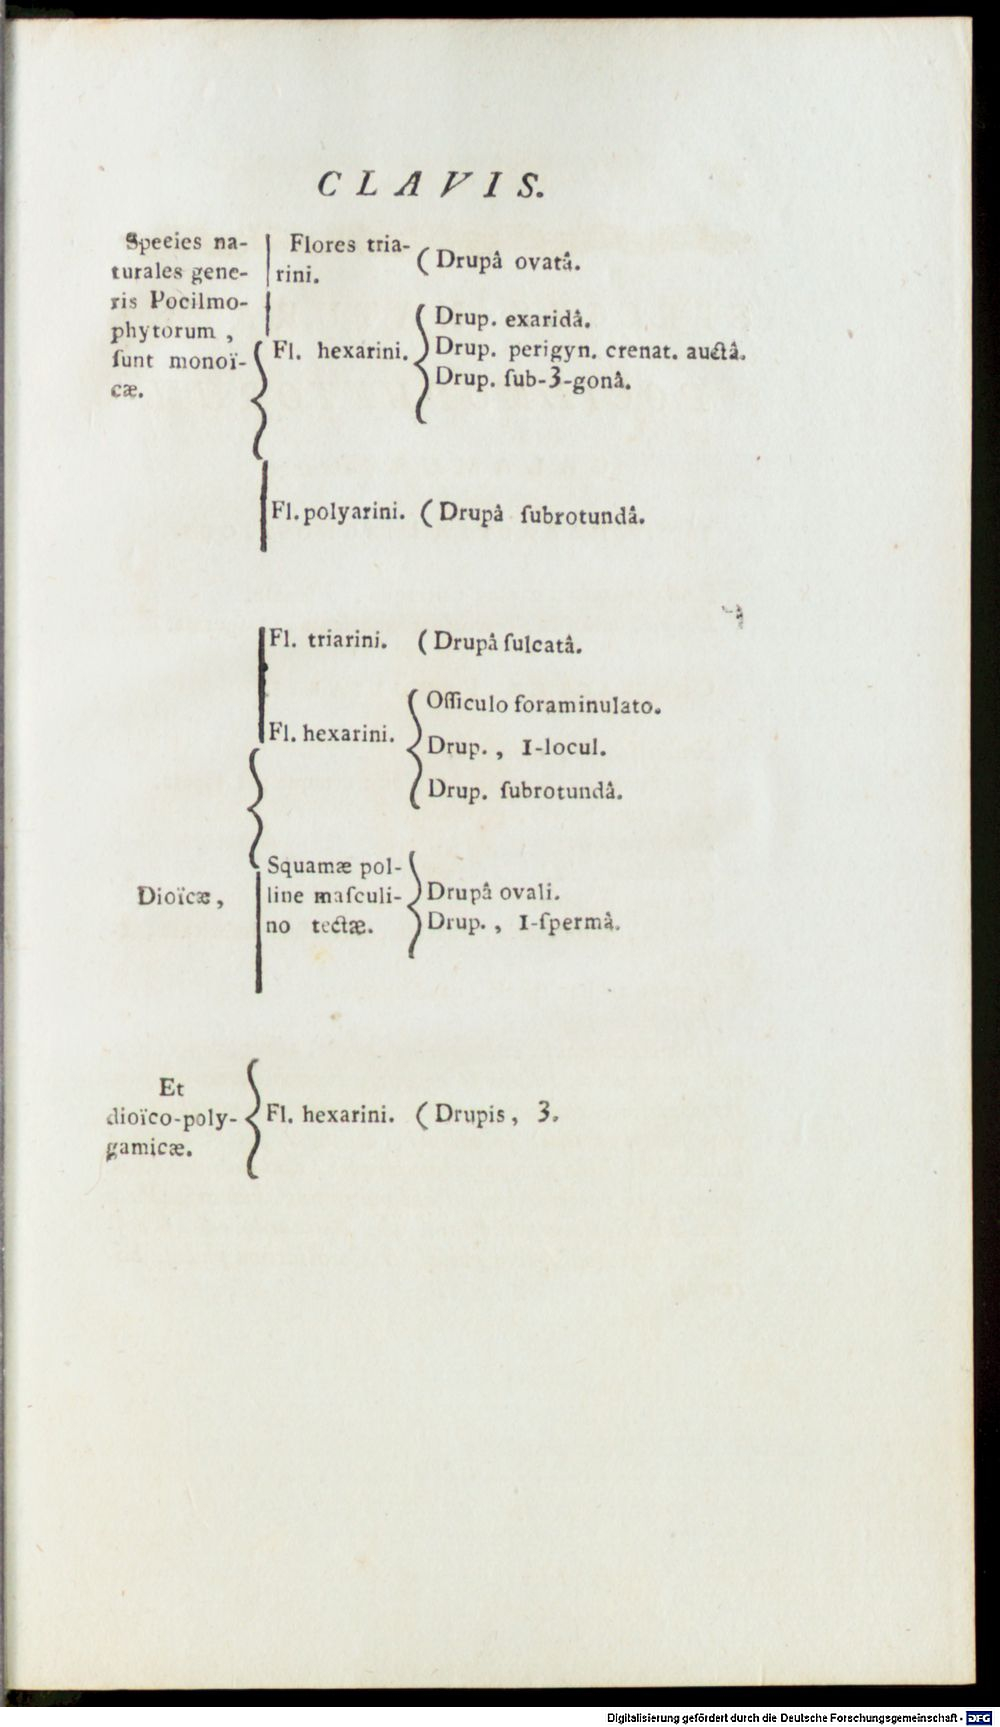 CLAVIS.
Speeies na-
turales gene-
ris Pocilmo-
phytorum ,
ſunt monoï-
cæ.
Flores tria-
rini.
( Drupâ ovatâ.
Fl. hexarini.
Drup. exaridâ.
Drup. perigyn. crenat. auctâ.
Drup. ſub-3-gonâ.
Fl. polyarini. ( Drupâ ſubrotundâ.
Dioïcæ,
Fl. triarini. ( Drupâ ſulcatâ.
Fl. hexarini.
Oſſiculo foraminulato.
Drup. , 1-locul.
Drup. ſubrotundâ.
Squamæ pol-
line maſculi-
no tectæ.
Drupâ ovali.
Drup. , 1-ſpermâ.
Et
dioïco-poly-
gamicæ.
Fl. hexarini. ( Drupis, 3.
Digitalisierung gefördert durch die Deutsche Forschungsgemeinschaft - DFG